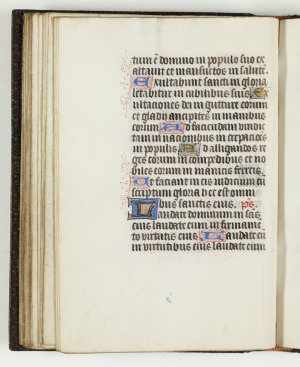 tum est domino in populo suo ex
altauit et mansuetos in salutem.
Exultabunt sancti in gloria
letabitur in cubilibus suis. Ex
ultaciones dei in gutture eorum
et gladii ancipites in manibus
eorum. Ad faciendam vindic
tam in nacionibus increpaciones
in populis. Ad alligandos re
ges eorum in compedibus et no
biles eorum in manicis ferreis.
Ut faciant in eis iudicium con
scriptum gloria hec est omni
bus sanctis eius. ps.
Laudate dominum in scis
eius laudate eum in firmamen
to virtutis eius. Laudate eum
in virtutibus eius laudate eum